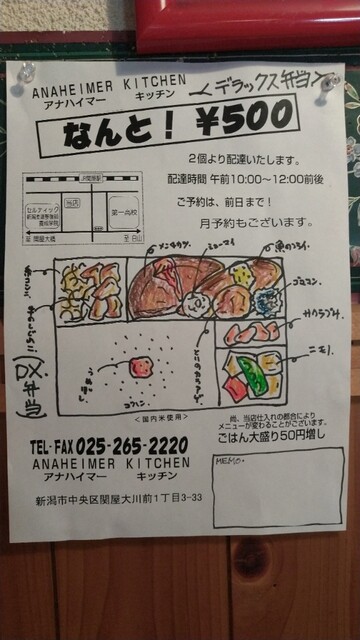 ANAHEIMER KITCHEN
アナハイマー キッチン
デラックス弁当
なんと! ¥500
2個より配達いたします。
配達時間 午前10:00〜12:00前後
ご予約は、前日まで!
月予約もございます。
当店
第一高校
至 関屋大橋
至 白山
メンチカツ
シューマイ
魚のフライ
ゴマアン
サカラヅケ
ニモノ
とりのカラアゲ
ゴハン
DX.弁当
<国内米使用>
尚、当店仕入れの都合により
メニューが変わることがございます。
ごはん大盛り50円増し
TEL・FAX 025-265-2220
ANAHEIMER KITCHEN
アナハイマー キッチン
新潟市中央区関屋大川前1丁目3-33
MEMO.